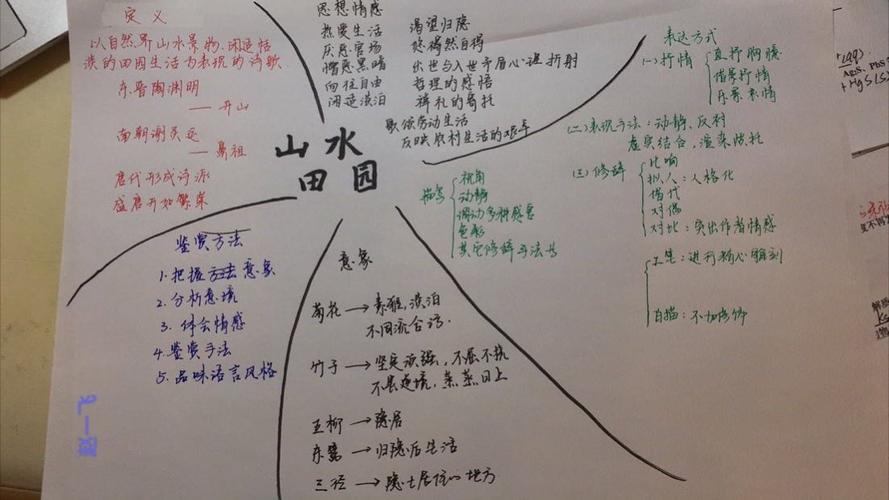 定义
以自然界山水景物、闲适恬
淡的田园生活为表现的诗歌
东晋陶渊明
——开山
南朝谢灵运
——鼻祖
唐代形成诗派
盛唐开始繁荣
思想情感
热爱生活
厌恶官场
憎恶黑暗
向往自由
闲适淡泊
渴望归隐
悠得然自得
出世与入世矛盾心理折射
哲理的感悟
禅礼的寄托
歌颂劳动生活
反映农村生活的艰辛
山水
田园
表达方式
(一)抒情
直抒胸臆
借景抒情
乐景哀情
(二)表现手法:动静、反衬
虚实结合,渲染烘托
(三)修辞
比喻
拟人:人格化
借代
对偶
对比:突出作者情感
工笔:进行精心雕刻
白描:不加修饰
描写
视角
动静
调动多种感官
色彩
其它修辞手法等
鉴赏方法
1.把握方法意象
2.分析意境
3.体会情感
4.鉴赏手法
5.品味语言风格
意象
菊花→素雅,淡泊
不同流合污.
竹子→坚定顽强,不屈不执
不畏逆境,蒸蒸日上
五柳→隐居
东篱→归隐后生活
三径→隐士居住的地方